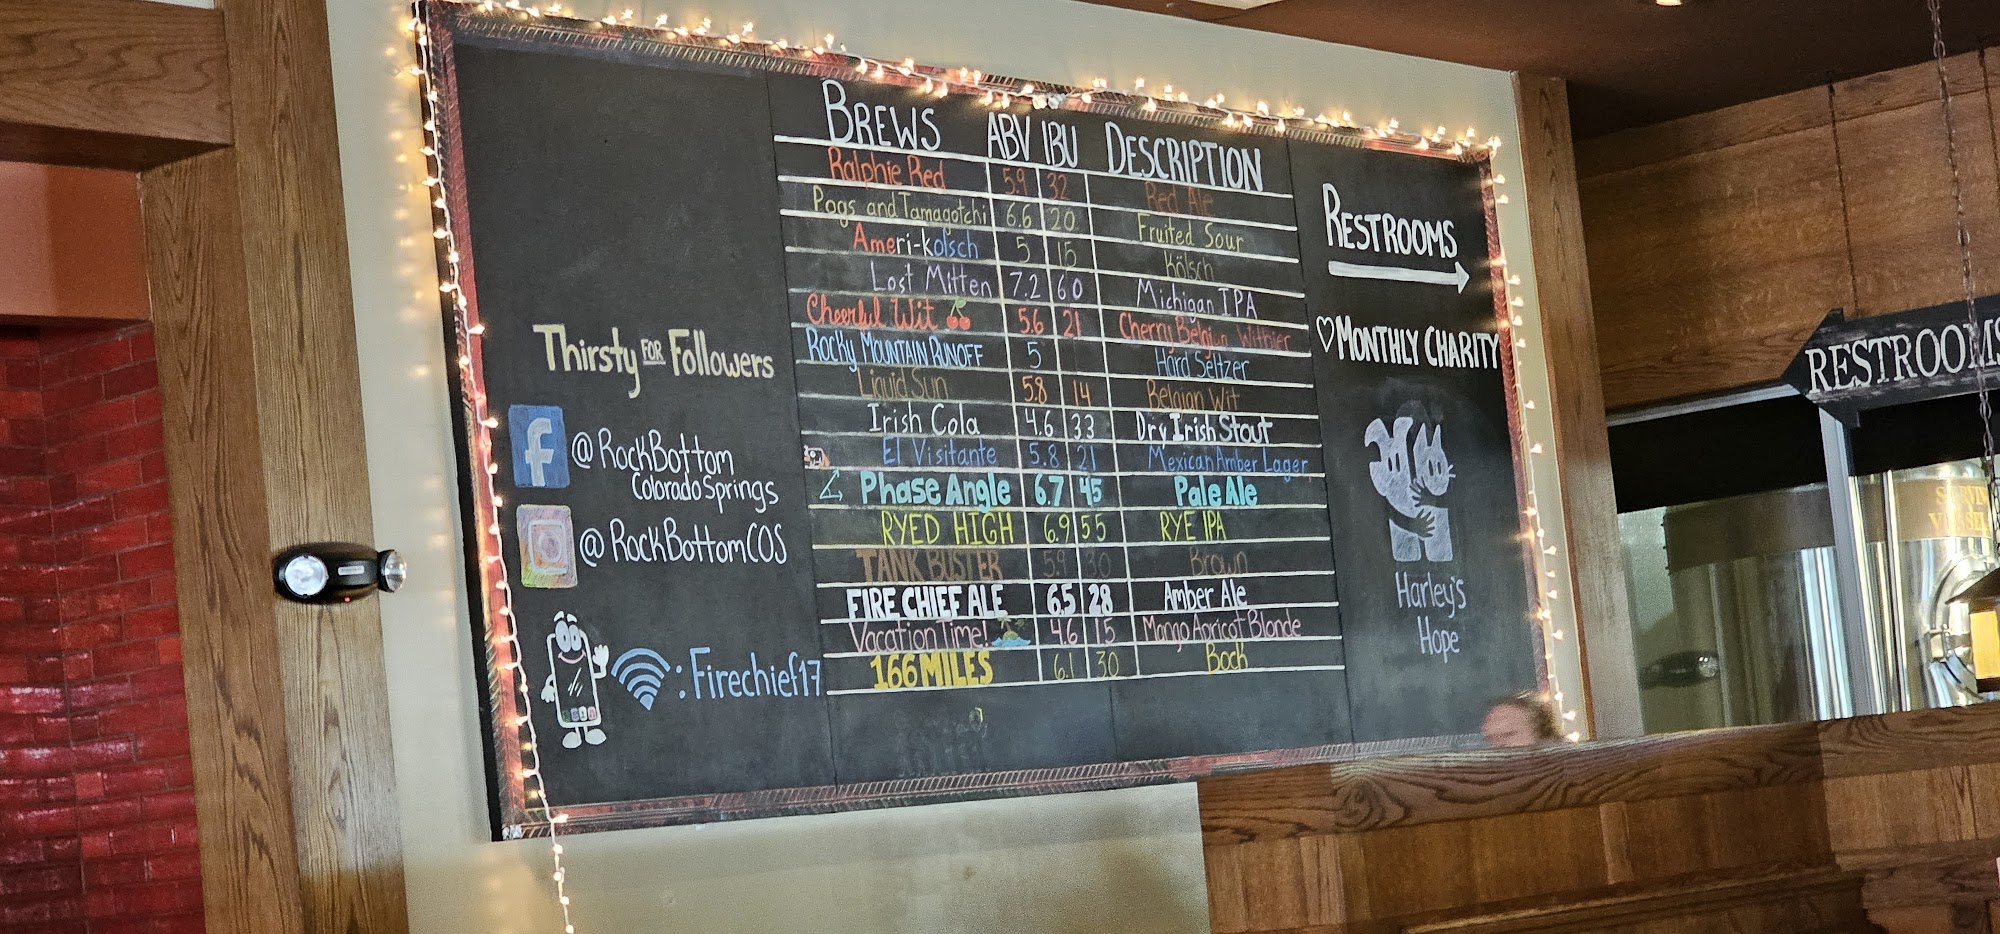 BREWS ABV IBU DESCRIPTION
Ralphie Red 5.9 32 Red Ale
Pogs and Tamagotchi 6.6 20 Fruited Sour
Ameri-kolsch 5 15 Kölsch
Lost Mitten 7.2 60 Michigan IPA
Cheerful Wit 5.6 21 Cherry Belgian Witbier
Rocky Mountain Runoff 5 Hard Seltzer
Liquid Sun 5.8 14 Belgian Wit
Irish Cola 4.6 33 Dry Irish Stout
El Visitante 5.8 21 Mexican Amber Lager
Phase Angle 6.7 45 Pale Ale
RYED HIGH 6.9 55 RYE IPA
TANK BUSTER 5.9 30 Brown
FIRE CHIEF ALE 6.5 28 Amber Ale
Vacation Time! 4.6 15 Mango Apricot Blonde
166 MILES 6.1 30 Bock
Thirsty FOR Followers
f @RockBottom
ColoradoSprings
@RockBottomCOS
: Firechief17
RESTROOMS
♡MONTHLY CHARITY
Harley's
Hope
RESTROOMS